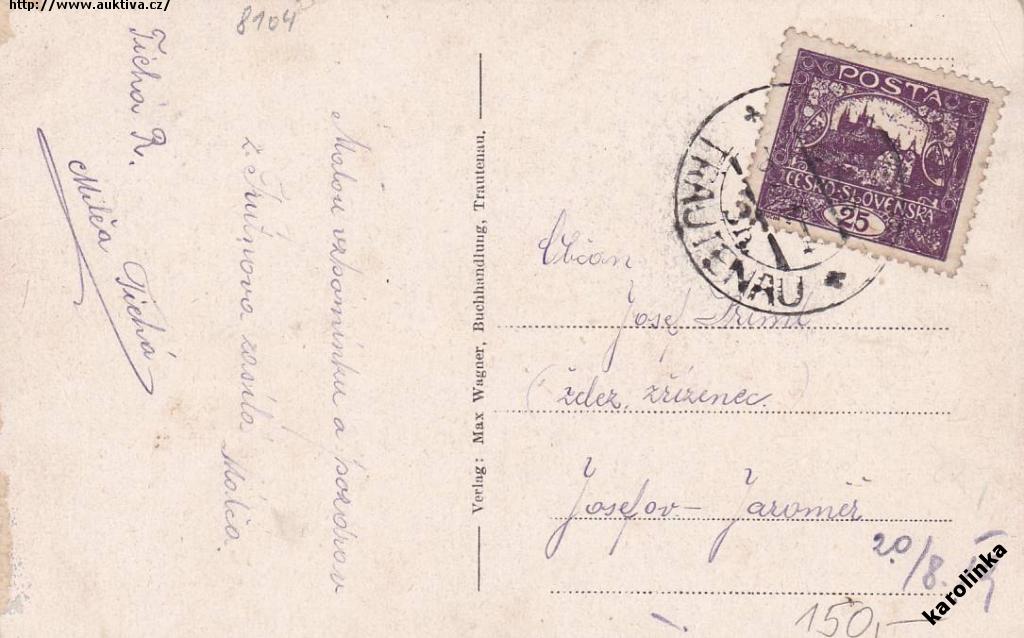 http://www.auktiva.cz/
8104
Tichá R.
Milča Tichá
Malou vzpomínku a pozdrav
z Trutnova zasílá Málča.
Verlag: Max Wagner, Buchhandlung, Trautenau,
POŠTA
ČESKO-SLOVENSKÁ
25
TRAUTENAU
Občan
Josef
(ždez. zřízenec.)
Josefov - Jaroměř
20/8.
150,-
karolinka